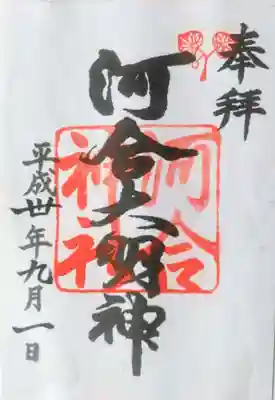 奉拝
河合大明神
河合
神社
平成丗年九月一日